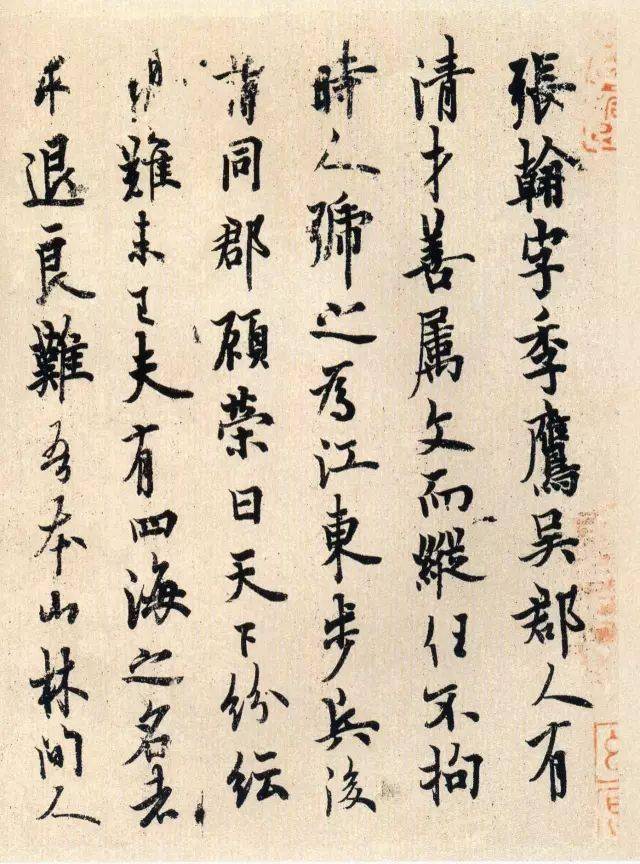 張翰字季鷹吳郡人有
清才善属文而縱任不拘
時人號之為江東步兵後
謂同郡顧榮曰天下紛紜
難未已夫有四海之名者
求退良難吾本山林間人